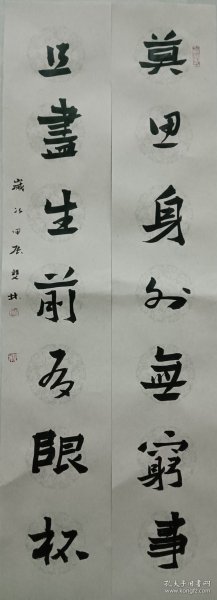 莫思身外無窮事
且盡生前有限杯
歲次甲辰
孔夫子旧书网